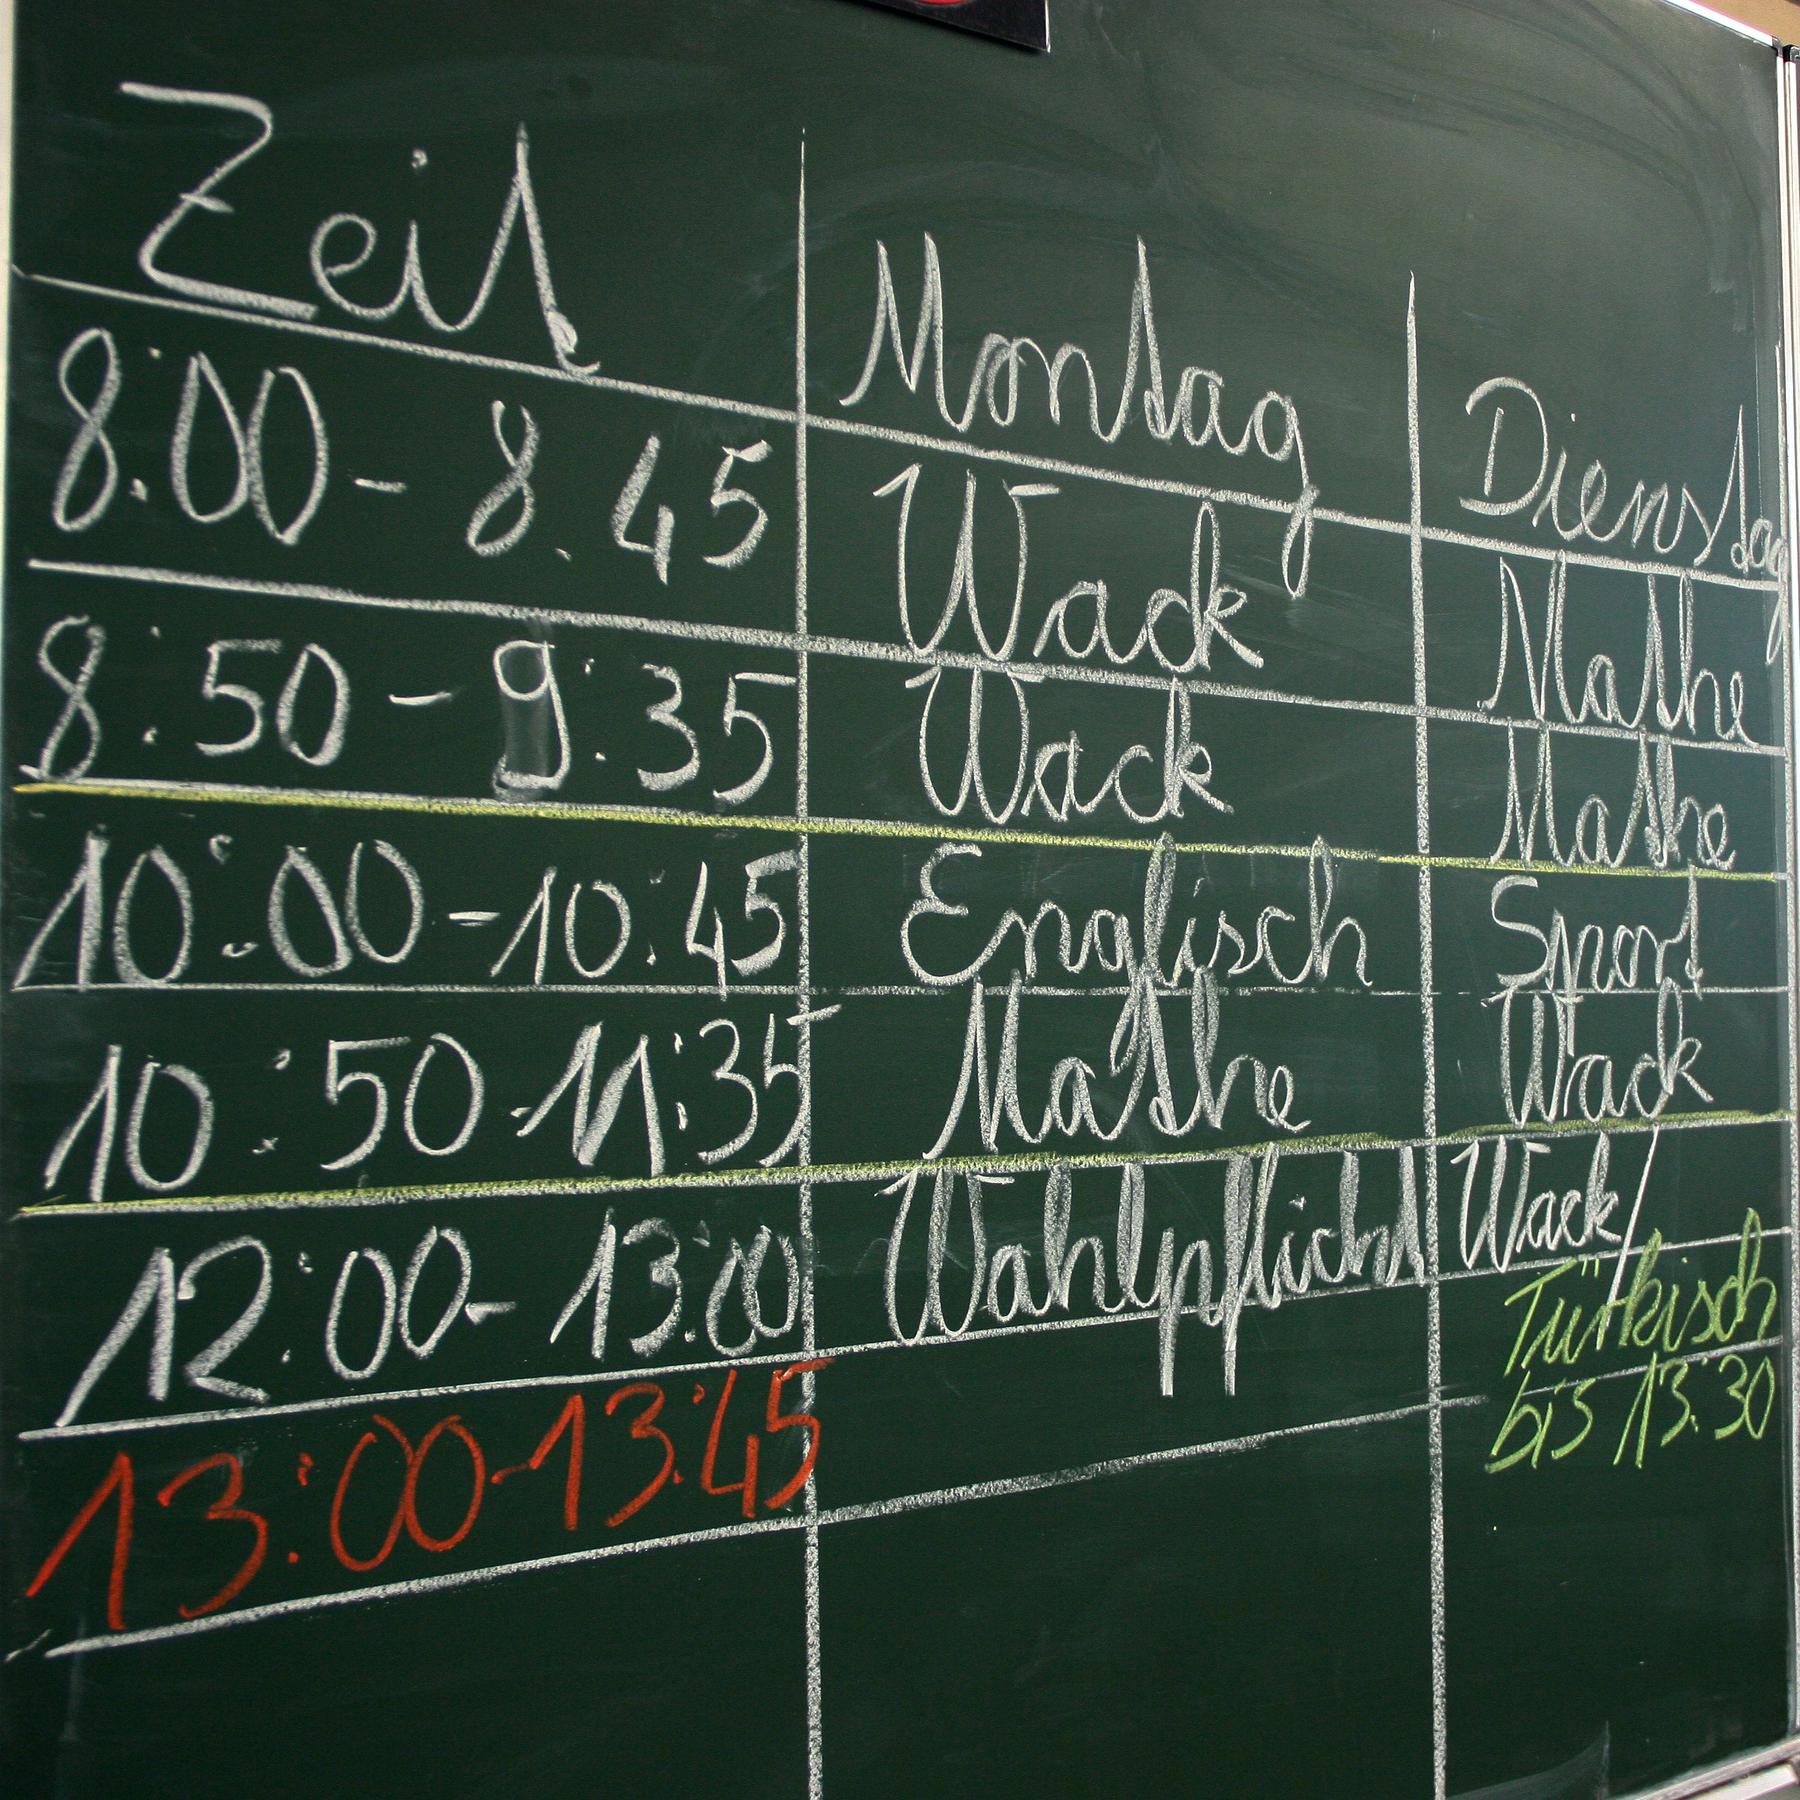 Zeit Montag Dienstag
8:00 - 8.45 Wack Mathe
8:50 - 9:35 Wack Mathe
10:00 - 10:45 Englisch Sport
10:50 - 11:35 Mathe Wack
12:00 - 13:00 Wahlpflicht Wack/
Türkisch
13:00 - 13:45 bis 13:30